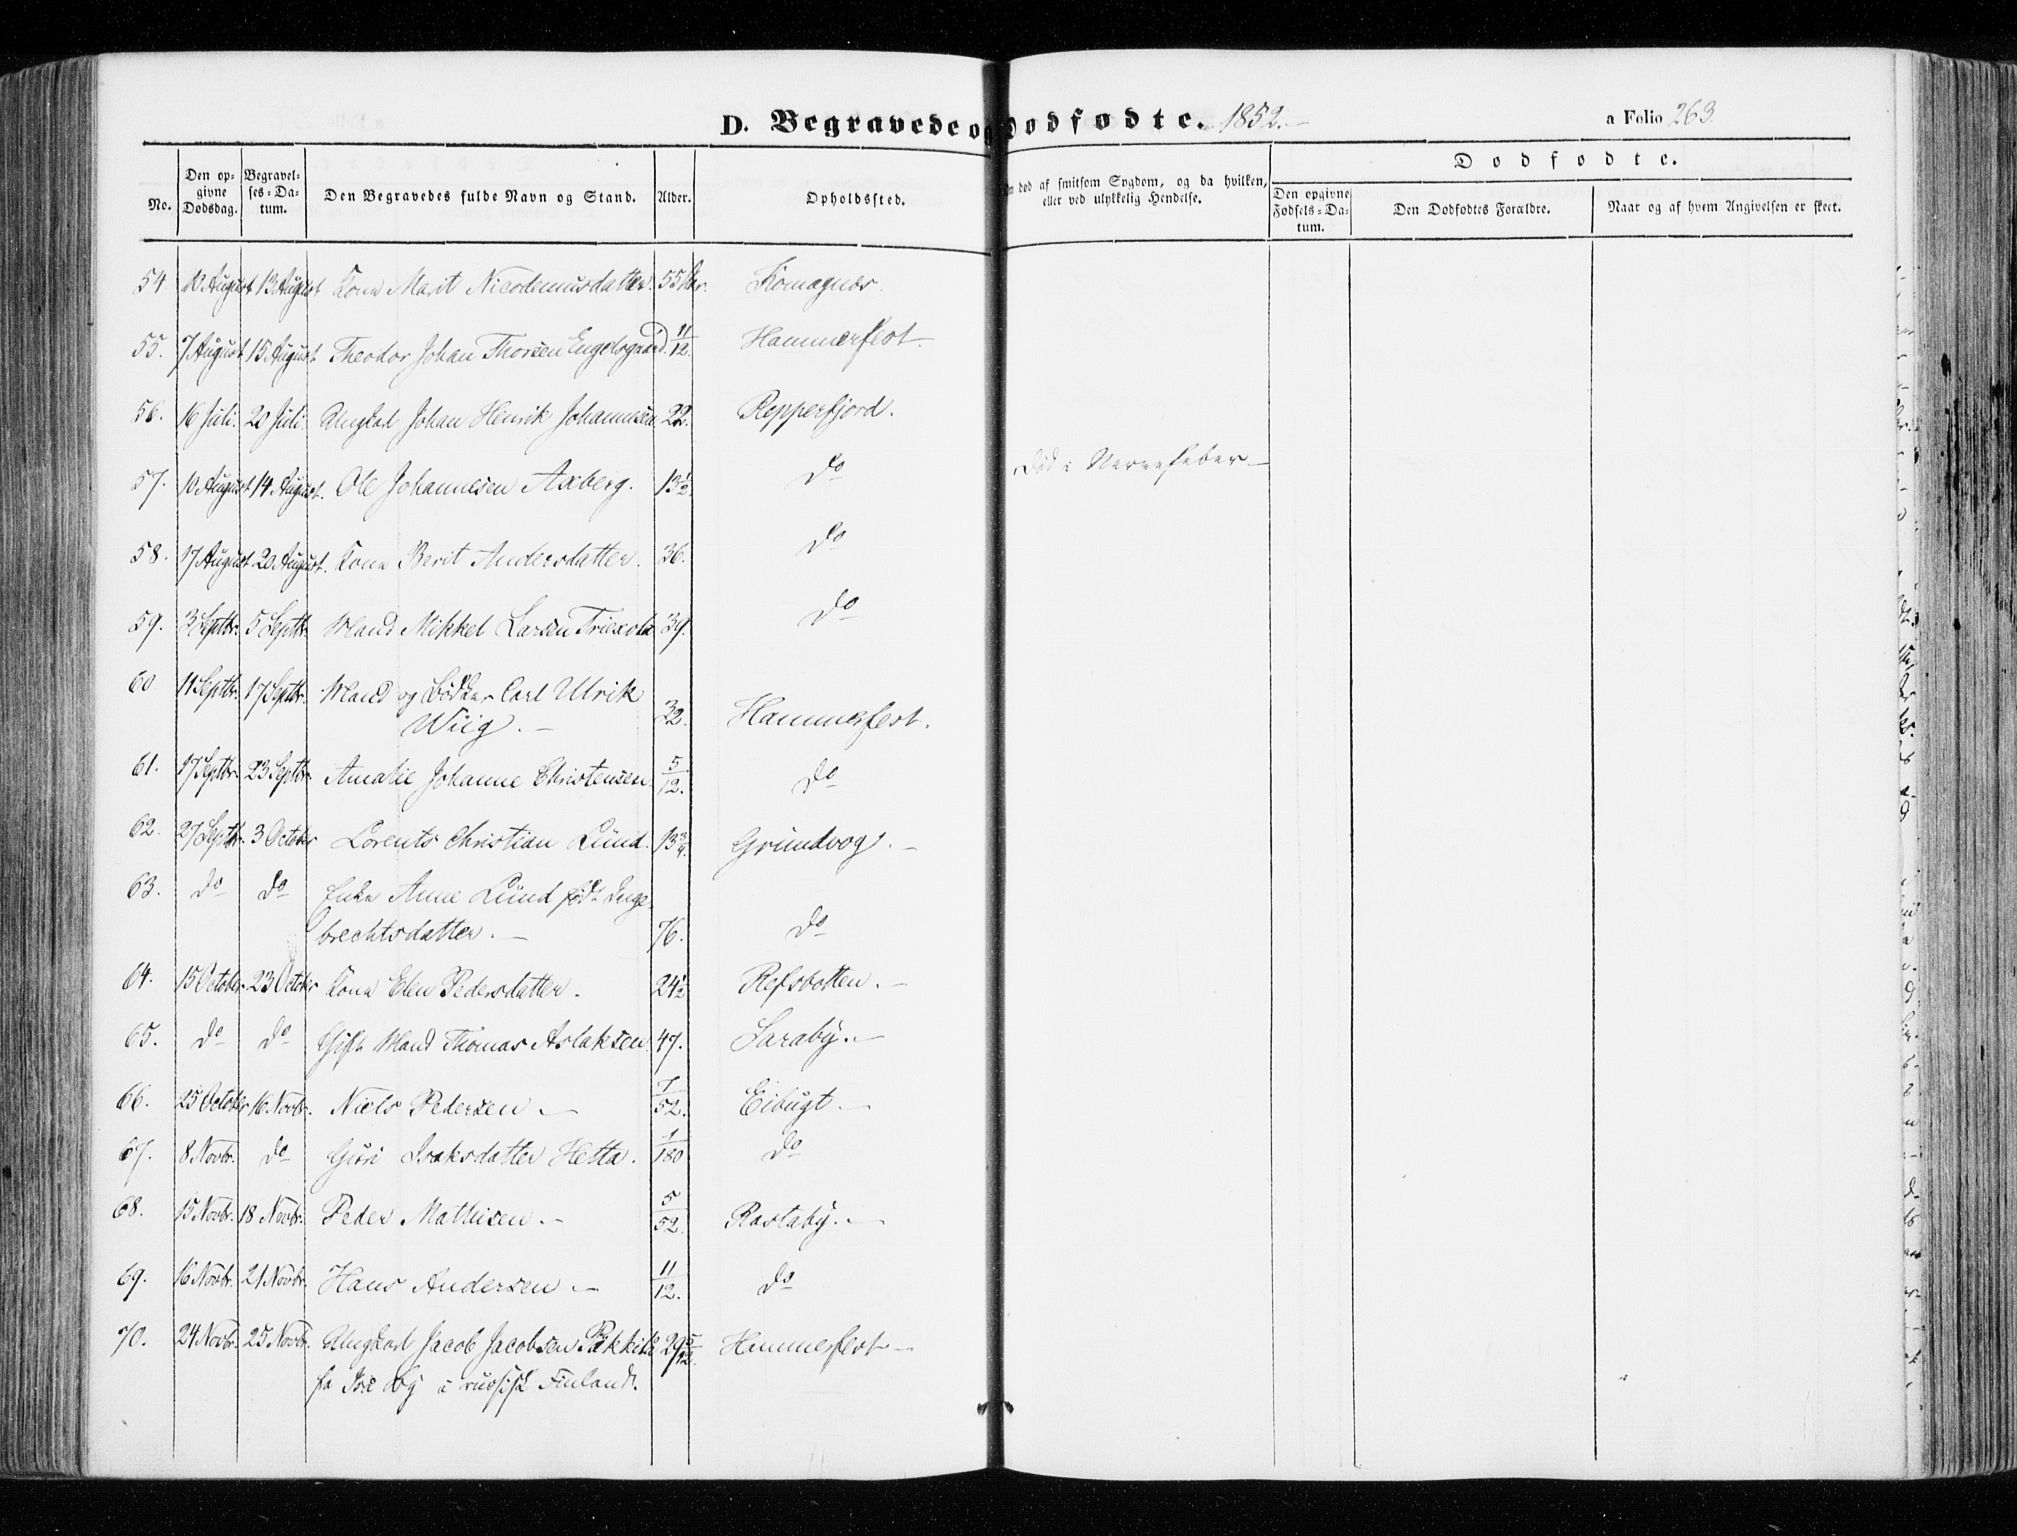 D. Begravede o Dødfødte. 1852.-
a Folio 263.
No.
Den opgivne Dødsdag.
Begravelses-Datum.
Den Begravedes fulde Navn og Stand.
Alder.
Opholdssted.
død af smitsom Sygdom, og da hvilken,
eller ved ulykkelig Hendelse.
Dødfødte.
Den opgivne Fødsels-Datum.
Den Dødfødtes Forældre.
Naar og af hvem Angivelsen er skeet.
54 10 August 13 August Kone Marit Nicodemusdatter. 55 Aar. Komagnes.
55. 7 August 15 August Theodor Johan Thorsen Engelsgaard. 11/12. Hammerfest-
56. 16 Juli. 20 Juli. Ungkarl Johan Henrik Johannesen 22. Repperfjord.
57. 10 August 14 August. Ole Johannesen Axberg. 13 1/2 Do Død i Nervefeber-
58. 17 August 20 August. Kone Berit Andersdatter. 36. Do
59. 3 Septbr. 5 Septbr Mand Mikkel Larsen 39. Do
60. 11 Septbr. 17 Septbr. Mand og Bødker Carl Ulrik
Wiig.- 32. Hammerfest.
61. 17 Septbr. 23 Septbr. Amalie Johanne Christensen. 5/12. Do
62. 27 Septbr. 3 October Lorents Christian Lund. 13 3/4. Grundvog.-
63. Do Do Enke Anne Lund født Inge-
brechtsdatter.- 76. Do
64. 15 October. 23 October Kone Elen Pedersdatter. 24 1/2 Refsbotten.-
65. Do Do Gift Mand Thomas Aslaksen 47. Saraby.-
66. 25 October 16 Novbr. Niels Pedersen- 7/52. Eibugt-
67. 8 Novbr. Do Guri Isaksdatter Hetta. 1/180 Do
68. 15 Novbr. 18 Novbr. Peder Mathisen.- 5/52. Rastaby.-
69. 16 Novbr. 21 Novbr. Hans Andersen- 11/12. Do
70. 24 Novbr. 25 Novbr. Ungkarl Jacob Jacobsen 29 5/12. Hammerfest-
fa i russisk Finland.